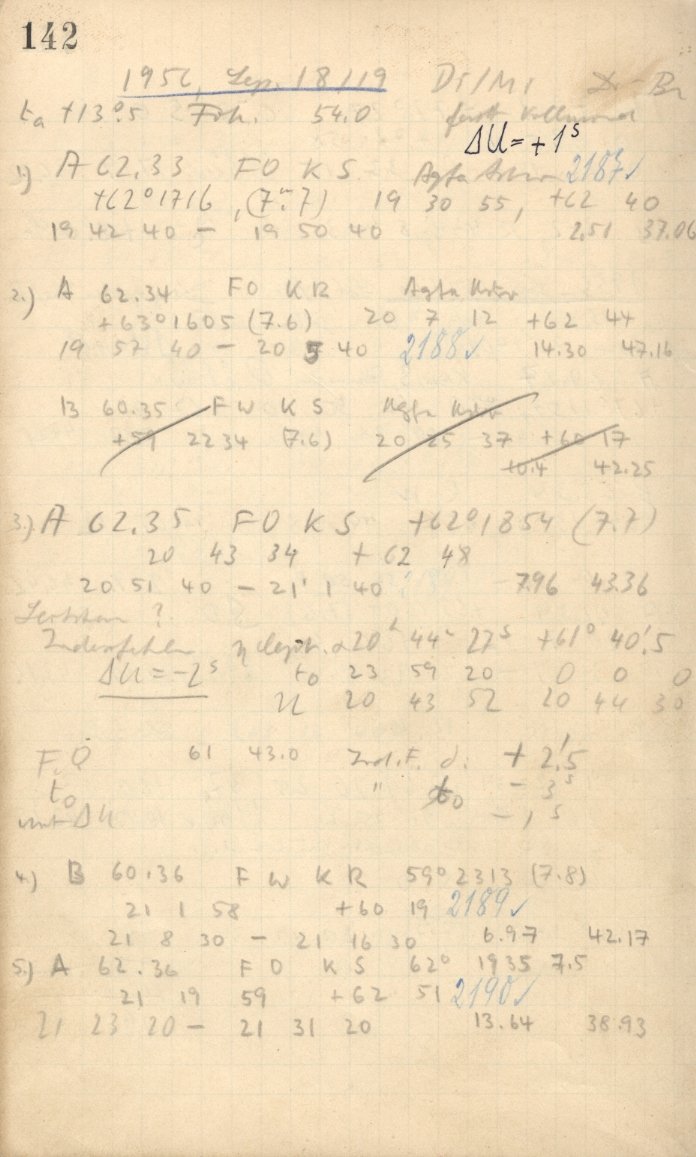 142
1956, Sep. 18/19 Di/Mi Dr-Br
ta +13°.5 Fok. 54.0 fast Vollmond
ΔU = +1s
1.) A 62.33 F O K S Agfa Astro 2187✓
+62° 1716, (7m.7) 19 30 55, +62 40
19 42 40 – 19 50 40 2.51 37.06
2.) A 62.34 F O K R Agfa Astro
+63° 1605 (7.6) 20 7 12 +62 44
19 57 40 – 20 5 40 2188✓ 14.30 47.16
B 60.35 F W K S Agfa Astro
+59 2234 (7.6) 20 25 37 +60 17
10.4 42.25
3.) A 62.35 F O K S +62° 1854 (7.7)
20 43 34 +62 48
20 51 40 – 21 1 40 7.96 43.36
?
Indexfehler η Cephei α 20h 44m 27s +61° 40'.5
ΔU = –2s t0 23 59 20 0 0 0
U 20 43 52 20 44 30
F.O 61 43.0 Ind.F. d. + 2'.5
t0 " t0 – 3s
mit ΔU – 1s
4.) B 60.36 F W K R 59° 2313 (7.8)
21 1 58 +60 19 2189✓
21 8 30 – 21 16 30 6.97 42.17
5.) A 62.36 F O K S 62° 1935 7.5
21 19 59 +62 51 2190✓
21 23 20 – 21 31 20 13.64 38.93